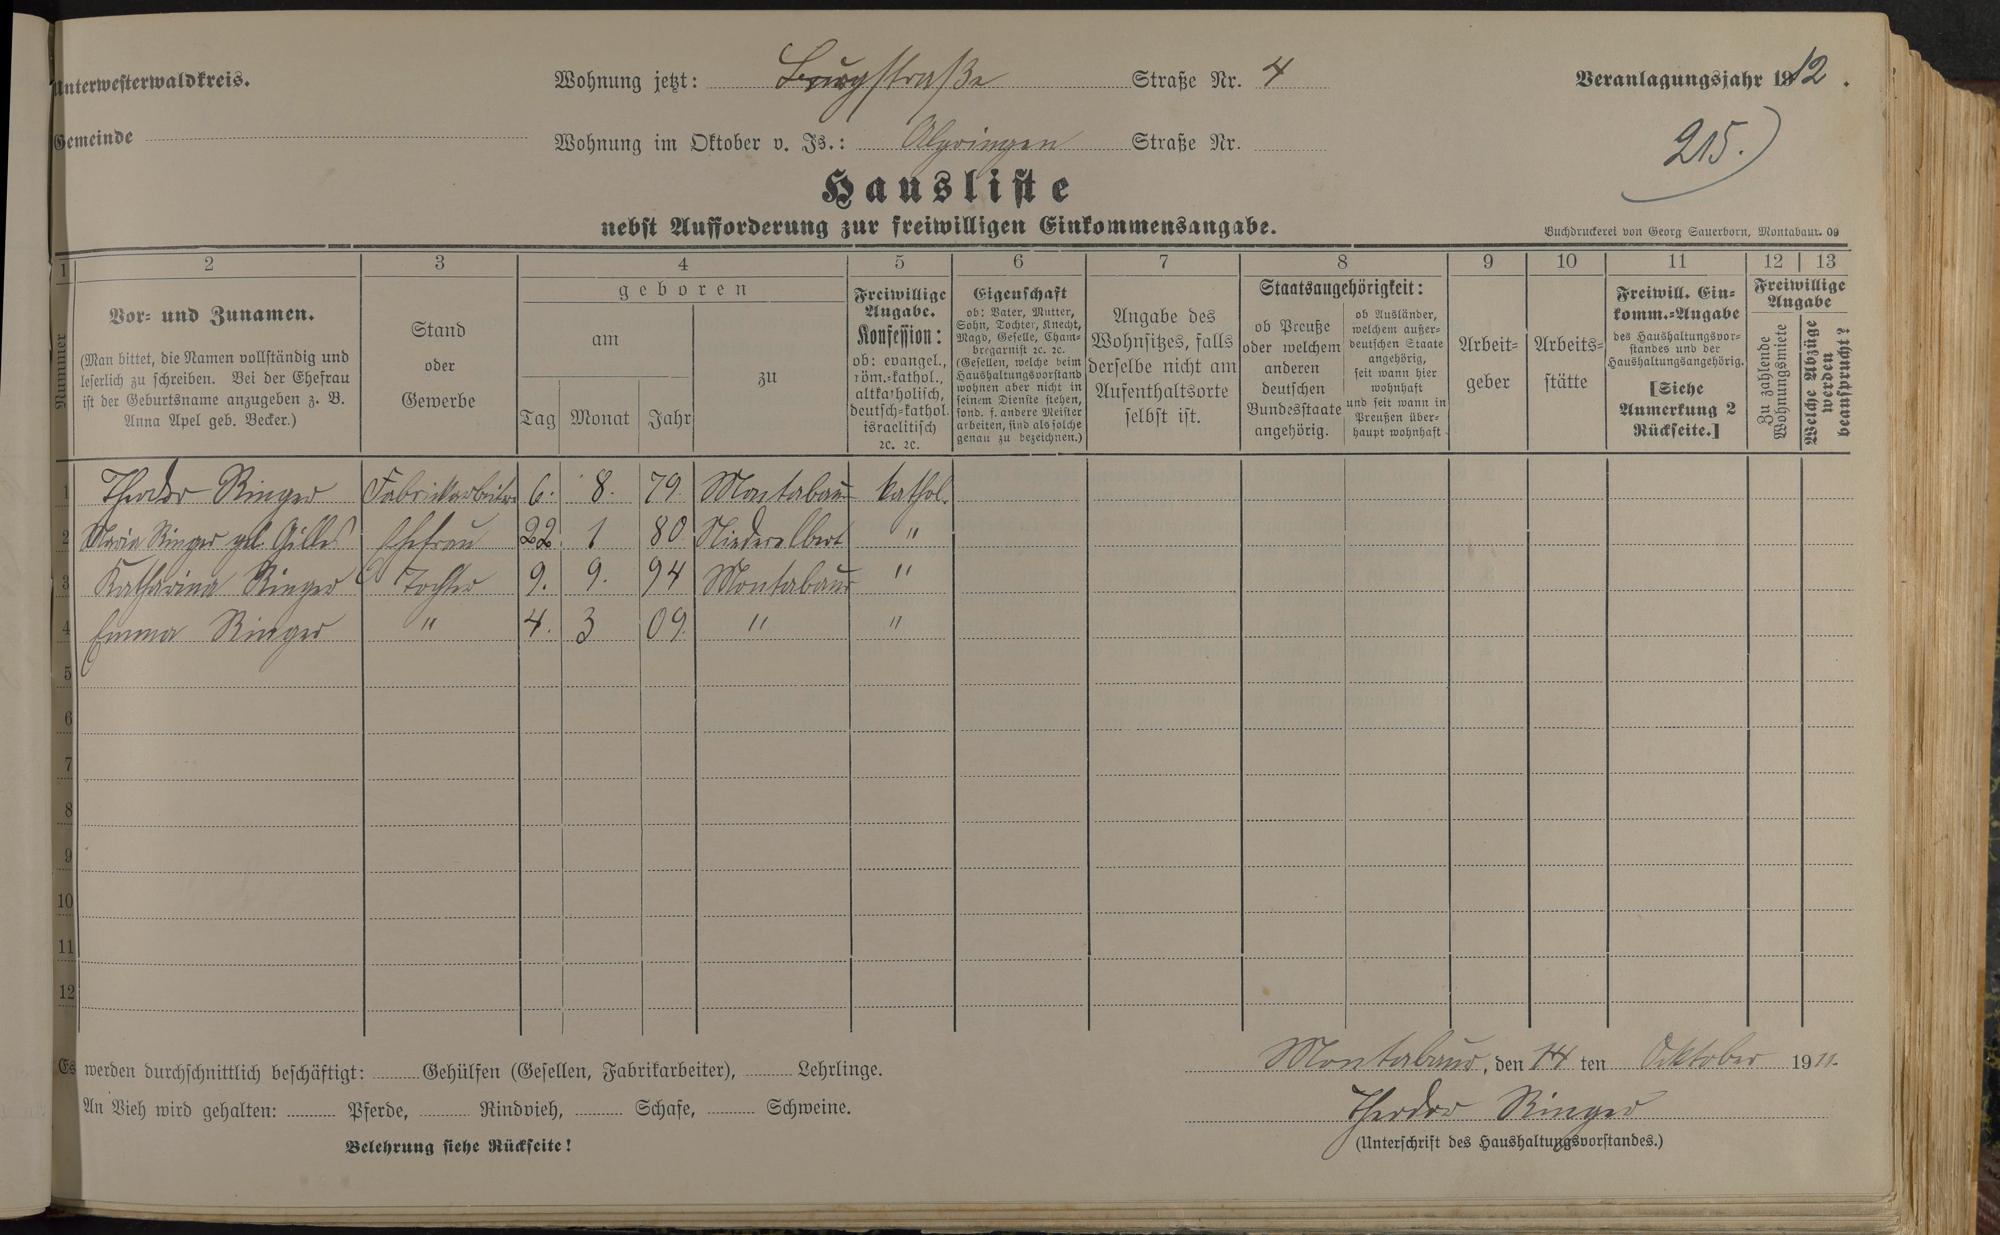 Unterwesterwaldkreis.
Wohnung jetzt: Burgstraße Straße Nr. 4
Veranlagungsjahr 1912.
Gemeinde
Wohnung im Oktober v. Js.: Straße Nr.
215.)
Hausliste
nebst Aufforderung zur freiwilligen Einkommensangabe.
Buchdruckerei von Georg Sauerborn, Montabaur. 09
1 2 3 4 5 6 7 8 9 10 11 12 13
Nummer
Vor- und Zunamen.
(Man bittet, die Namen vollständig und
leserlich zu schreiben. Bei der Ehefrau
ist der Geburtsname anzugeben z. B.
Anna Apel geb. Becker.)
Stand
oder
Gewerbe
geboren
am
Tag Monat Jahr
zu
Freiwillige
Angabe.
Konfession:
ob: evangel.,
röm.-kathol.,
altkatholisch,
deutsch-kathol.
israelitisch
ꝛc. ꝛc.
Eigenschaft
ob: Vater, Mutter,
Sohn, Tochter, Knecht,
Magd, Geselle, Cham-
bregarnist ꝛc. ꝛc.
(Gesellen, welche beim
Haushaltungsvorstand
wohnen aber nicht in
seinem Dienste stehen,
sond. f. andere Meister
arbeiten, sind als solche
genau zu bezeichnen.)
Angabe des
Wohnsitzes, falls
derselbe nicht am
Aufenthaltsorte
selbst ist.
Staatsangehörigkeit:
ob Preuße
oder welchem
anderen
deutschen
Bundesstaate
angehörig.
ob Ausländer,
welchem außer-
deutschen Staate
angehörig,
seit wann hier
wohnhaft
und seit wann in
Preußen über-
haupt wohnhaft
Arbeit-
geber
Arbeits-
stätte
Freiwill. Ein-
komm.-Angabe
des Haushaltungsvor-
standes und der
Haushaltungsangehörig.
[Siehe
Anmerkung 2
Rückseite.]
Freiwillige
Angabe
Zu zahlende
Wohnungsmiete
Welche Abzüge
werden
beansprucht?
1 Theodor Ringer Fabrikarbeiter 6. 8. 79. Montabaur kathol.
2 Maria Ringer geb. Gilles Ehefrau 22. 1 80 Niederelbert "
3 Katharina Ringer Tochter 9. 9. 94 Montabaur "
4 Emma Ringer " 4. 3 09. " "
5
6
7
8
9
10
11
12
Es werden durchschnittlich beschäftigt: Gehülfen (Gesellen, Fabrikarbeiter), Lehrlinge.
Montabaur, den 14 ten Oktober 1911.
An Vieh wird gehalten: Pferde, Rindvieh, Schafe, Schweine.
Theodor Ringer
Belehrung siehe Rückseite!
(Unterschrift des Haushaltungsvorstandes.)